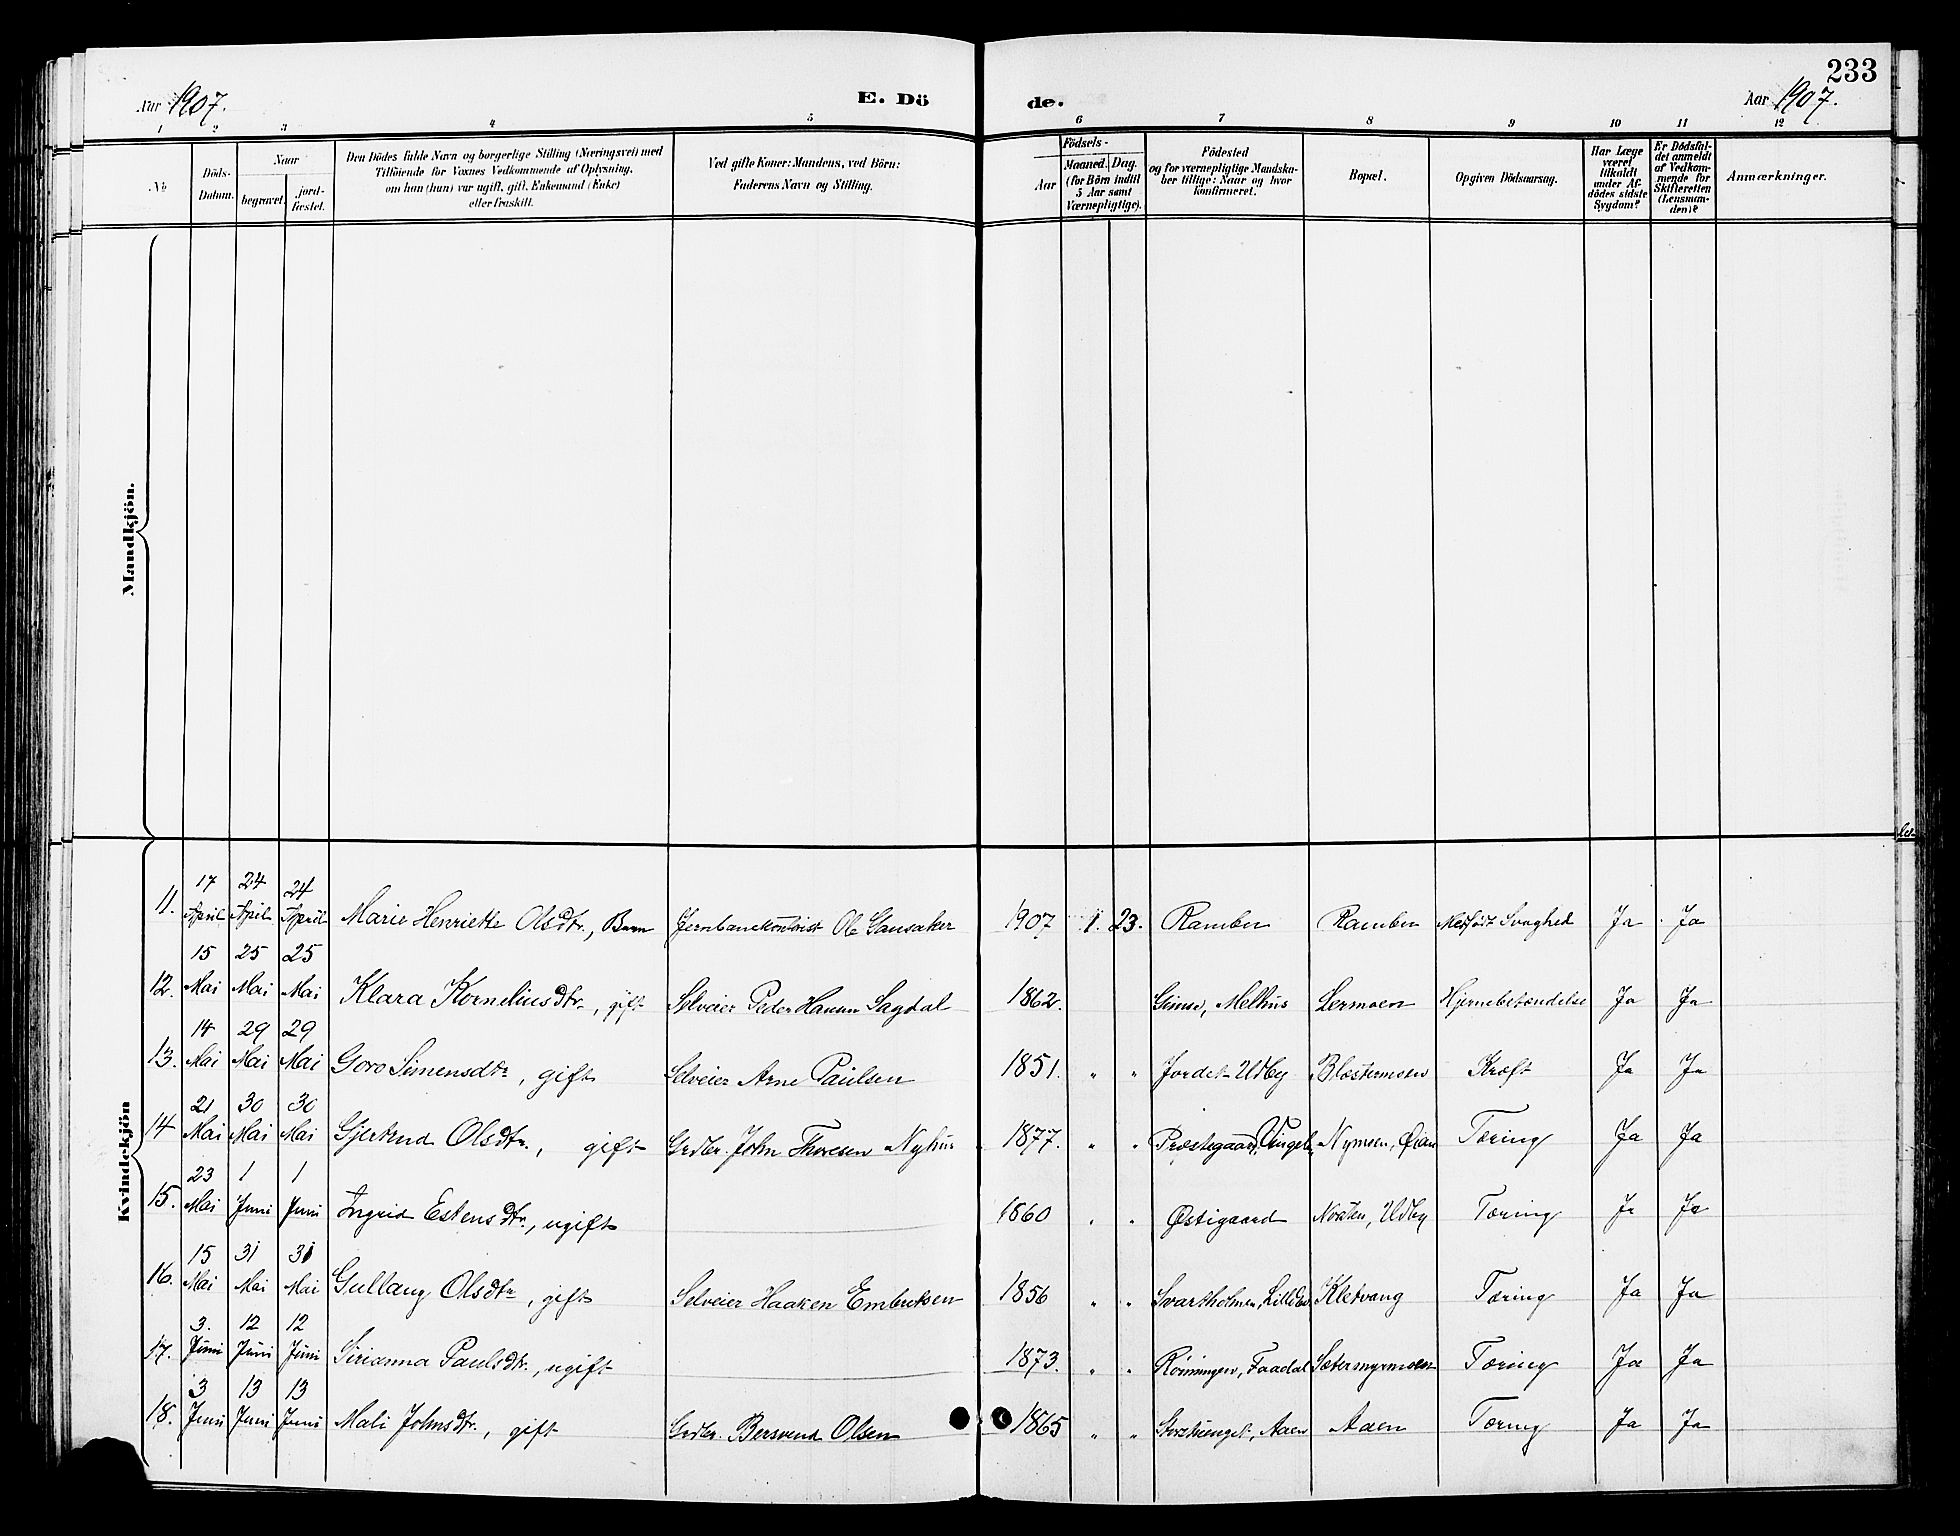 233
Aar 1907. E. Dö de. Aar 1907.
1 2 3 4 5 6 7 8 9 10 11 12
No
Döds-
Datum.
Naar
begravet.
jord-
fæstet.
Den Dödes fulde Navn og borgerlige Stilling (Næringsvei) med
Tilföiende for Voxnes Vedkommende af Oplysning,
om han (hun) var ugift, gift, Enkemand (Enke)
eller fraskilt.
Ved gifte Koner: Mandens, ved Börn:
Faderens Navn og Stilling.
Födsels-
Aar
Maaned. Dag.
(for Börn indtil
5 Aar samt
Værnepligtige).
Födested
og for værnepligtige Mandska-
ber tillige: Naar og hvor
konfirmeret.
Bopæl.
Opgiven Dödsaarsag.
Har Læge
været
tilkaldt
under Af-
dödes sidste
Sygdom?
Er Dödsfal-
det anmeldt
af Vedkom-
mende for
Skifteretten
(Lensman-
den)?
Anmærkninger.
Mandkjön.
Kvindekjön
11. 17 April 24 April 24 April Marie Henriette Olsdtr., Barn Jernbanekontorist Ole Gansaker 1907 1. 23. Ramben Ramben Medfödt Svaghed Ja Ja
12. 15 Mai 25 Mai 25 Mai Klara Korneliusdtr., gift Selveier Peder Hansen Sagdal 1862. Gimse, Melhus Lermoen Hjernebetændelse Ja Ja
13. 14 Mai 29 Mai 29 Mai Goro Simensdtr, gift Selveier Arne Paulsen 1851. " " Jordet-Udby Blæstermoen Kræft Ja Ja
14 21 Mai 30 Mai 30 Mai Gjertrud Olsdtr., gift Grdbr. John Thoresen Nyhus 1877. " " Præstegaard, Vingelen Nymoen, Øian Tæring Ja Ja
15. 23 Mai 1 Juni 1 Juni Ingrid Estensdtr., ugift 1860 " " Østigaard Udby Tæring Ja Ja
16. 15 Mai 31 Mai 31 Mai Gullaug Olsdtr, gift Selveier Haaken Embretsen 1856 " " Svartholmen, Kletvang Tæring Ja Ja
17. 3. Juni 12 Juni 12 Juni Sirianna Paulsdtr., ugift 1873. " " Rönningen, Faadal Sætermyrmoen Tæring Ja Ja
18. 3 Juni 13 Juni 13 Juni Mali Johnsdtr., gift Grdbr. Bersvend Olsen 1865 " " Aaen Aaen Tæring Ja Ja